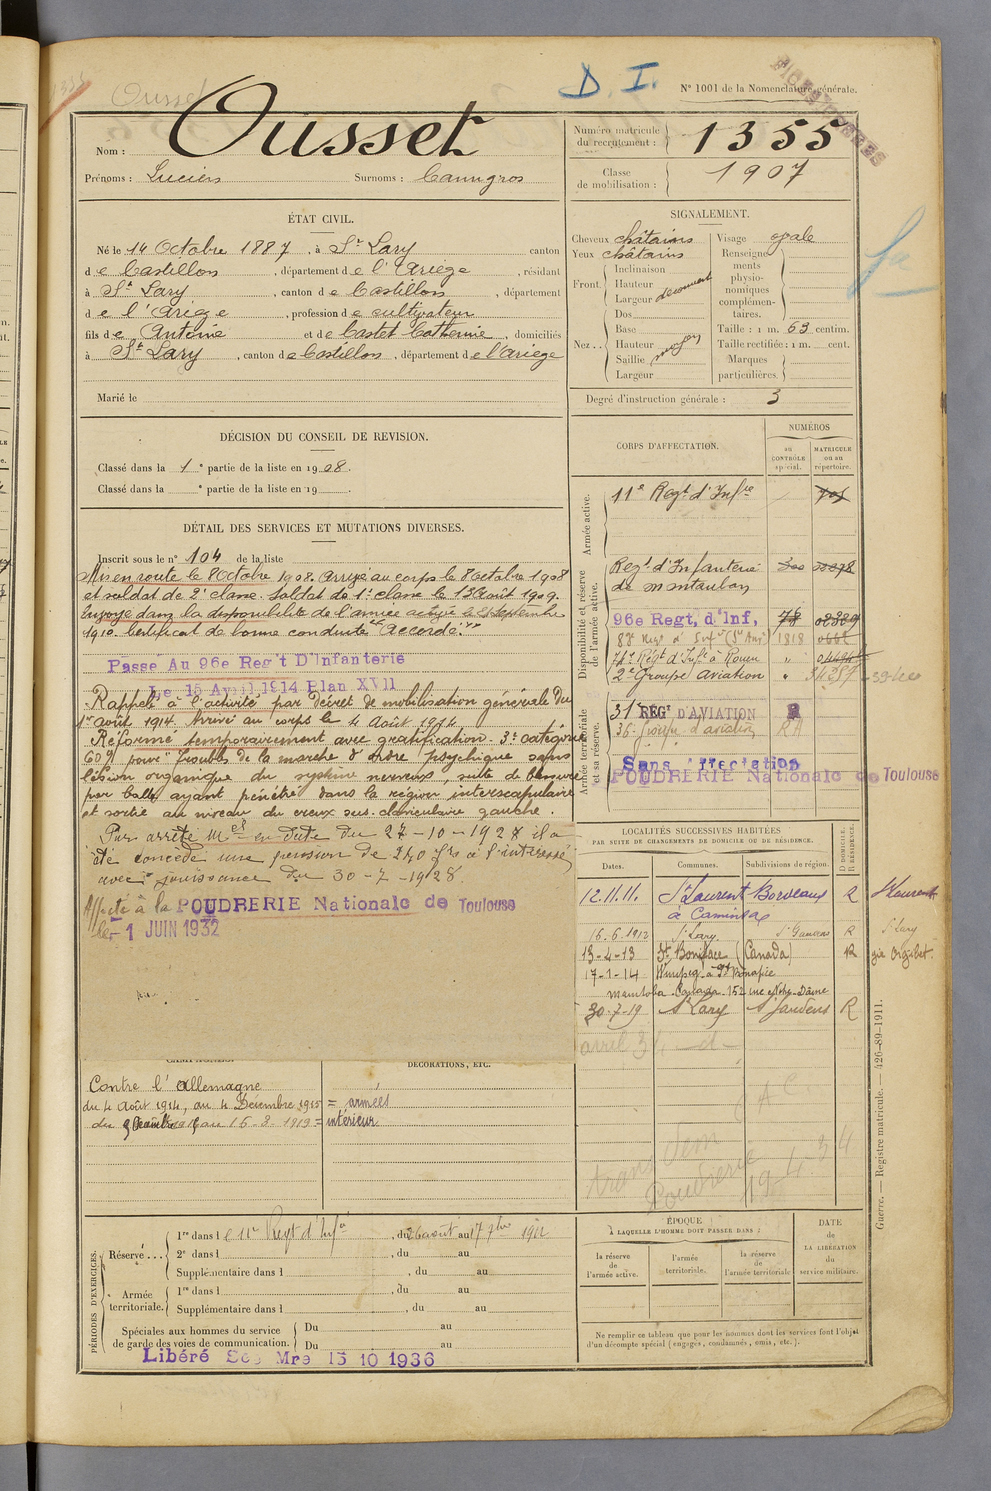 D. I.
N° 1001 de la Nomenclature générale.
1355
Ousset
Nom : Ousset
Prénoms : Lucien Surnoms :
Numéro matricule du recrutement : 1355
Classe de mobilisation : 1907
ÉTAT CIVIL.
Né le 14 Octobre 1887, à St Lary canton
de Castillon, département de l'Ariège, résidant
à St Lary, canton de Castillon, département
de l'Ariège, profession de cultivateur
fils de Antoine et de Castet Catherine, domiciliés
à St Lary, canton de Castillon, département de l'Ariège
Marié le
SIGNALEMENT.
Cheveux châtains
Yeux châtains
Front.
Inclinaison
Hauteur
Largeur
Nez..
Dos
Base
Hauteur
Saillie moyen
Largeur
Visage ovale
Renseignements physionomiques complémentaires.
Taille : 1 m. 63 centim.
Taille rectifiée : 1 m. cent.
Marques particulières.
Degré d'instruction générale : 3
DÉCISION DU CONSEIL DE REVISION.
Classé dans la 1e partie de la liste en 1908.
Classé dans la e partie de la liste en 19
DÉTAIL DES SERVICES ET MUTATIONS DIVERSES.
Inscrit sous le n° 104 de la liste
Mis en route le 8 Octobre 1908. Arrivé au corps le 8 octobre 1908
et soldat de 2e classe. Soldat de 1e classe le 13 août 1909.
Envoyé dans la disponibilité de l'armée active le 25 septembre
1910. Certificat de bonne conduite "Accordé".
Passé Au 96e Reg't D'Infanterie
Le 15 Avril 1914 Plan XVII
Rappelé à l'activité par décret de mobilisation générale du
1er août 1914. Arrivé au corps le 4 Août 1914
Réformé temporairement avec gratification. 3e catégorie
60% pour "Troubles de la marche d'ordre psychique sans
lésion organique du système nerveux, suite de blessure
par balle ayant pénétré dans la région interscapulaire
et sortie au niveau du creux sus-claviculaire gauche.
Par arrêté Mel en date du 27-10-1928 il a
été concédé une pension de 240 frs à l'intéressé
avec jouissance du 30-7-1928.
Affecté à la POUDRERIE Nationale de Toulouse
le - 1 JUIN 1932
CORPS D'AFFECTATION.
NUMÉROS
au CONTRÔLE spécial.
MATRICULE ou au répertoire.
Armée active.
11e Regt d'Infie
Disponibilité et réserve de l'armée active.
Regt d'Infanterie
de Montauban
96e Regt, d'Inf,
83e Regt d'Infie 1818
74e Régt d'Infie à Rouen "
2e Groupe Aviation "
Armée territoriale et sa réserve.
31e REGt D'AVIATION
36e groupe d'aviation
Sans Affectation
POUDRERIE Nationale de Toulouse
LOCALITÉS SUCCESSIVES HABITÉES
PAR SUITE DE CHANGEMENTS DE DOMICILE OU DE RÉSIDENCE.
Dates. Communes. Subdivisions de région. D. DOMICILE. R. RÉSIDENCE.
12.11.11. St Laurent Bordeaux R
16.6.1912 St Lary. St Gaudens R
13-4-13 St Boniface (Canada) R
17-1-14 Winnipeg - à St Boniface
Manitoba Canada - 152 rue Notre-Dame
30-7-19 St Lary St Gaudens R
CAMPAGNES.
Contre l'Allemagne
du 4 Août 1914, au 4 Décembre 1915 = armées
au 15-8-1919 = intérieur
DÉCORATIONS, ETC.
Poudrerie
19-4-34
PÉRIODES D'EXERCICES.
Réserve...
1re dans le 11e Regt d'Infie, du 26 août au 17 7bre 1912
2e dans l , du au
Supplémentaire dans l , du au
Armée territoriale.
1re dans l , du au
Supplémentaire dans l , du au
Spéciales aux hommes du service de garde des voies de communication.
Du au
Du au
Libéré Ser Mre 15 10 1936
ÉPOQUE
À LAQUELLE L'HOMME DOIT PASSER DANS :
la réserve de l'armée active.
l'armée territoriale.
la réserve de l'armée territoriale
DATE DE LA LIBÉRATION du service militaire.
Ne remplir ce tableau que pour les hommes dont les services font l'objet
d'un décompte spécial (engagés, condamnés, omis, etc.).
Guerre. — Registre matricule. — 426-89-1911.